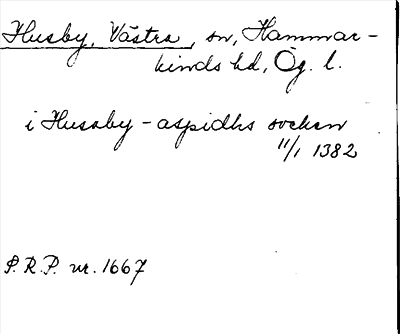 Husby, Västra, sn, Hammar-
kinds hd, Ög. l.
i Husaby-aspidhs socken
11/1 1382
P.R.P. nr. 1667